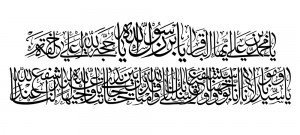 يا محمد بن علي أيها الباقر يا بن رسول الله يا حجة الله على خلقه
يا سيدنا ومولانا إنا توجهنا واستشفعنا وتوسلنا بك إلى الله وقدمناك بين يدي حاجاتنا يا وجيها عند الله اشفع لنا عند الله